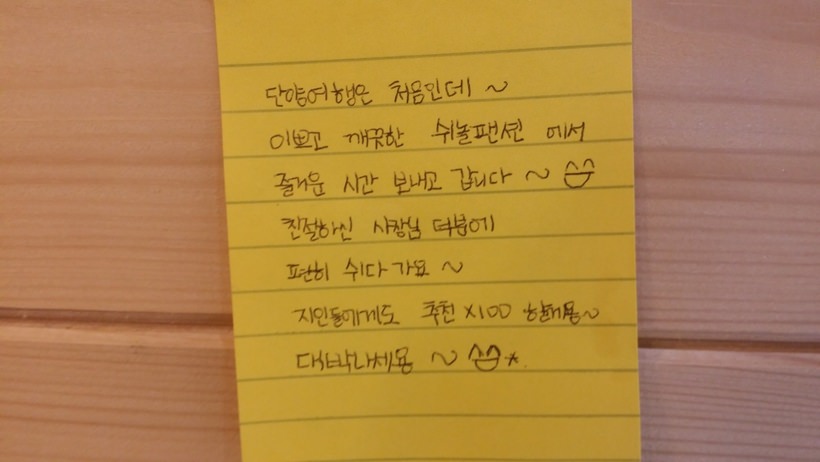 단양여행은 처음인데 ~
이쁘고 깨끗한 쉬놀팬션 에서
즐거운 시간 보내고 갑니다 ~
친절하신 사장님 덕분에
편히 쉬다 가요 ~
지인들에게도 추천 x100 할께용~
대박나세용 ~ *